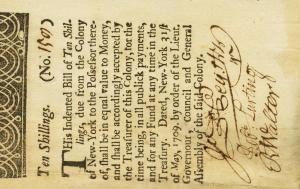 Ten Shillings. (No. 1501)
THis Indented Bill of Ten Shil-
lings, due from the Colony
of New-York to the Possessor there-
of, shall be in equal value to Money,
and shall be accordingly accepted by
the Treasurer of this Colony, for the
time being, in all publick payments,
and for any Fund at any time in the
Treasury. Dated, New-York 31st
of May, 1709. by order of the Lieut.
Governour, Council and General
Assembly of the said Colony.